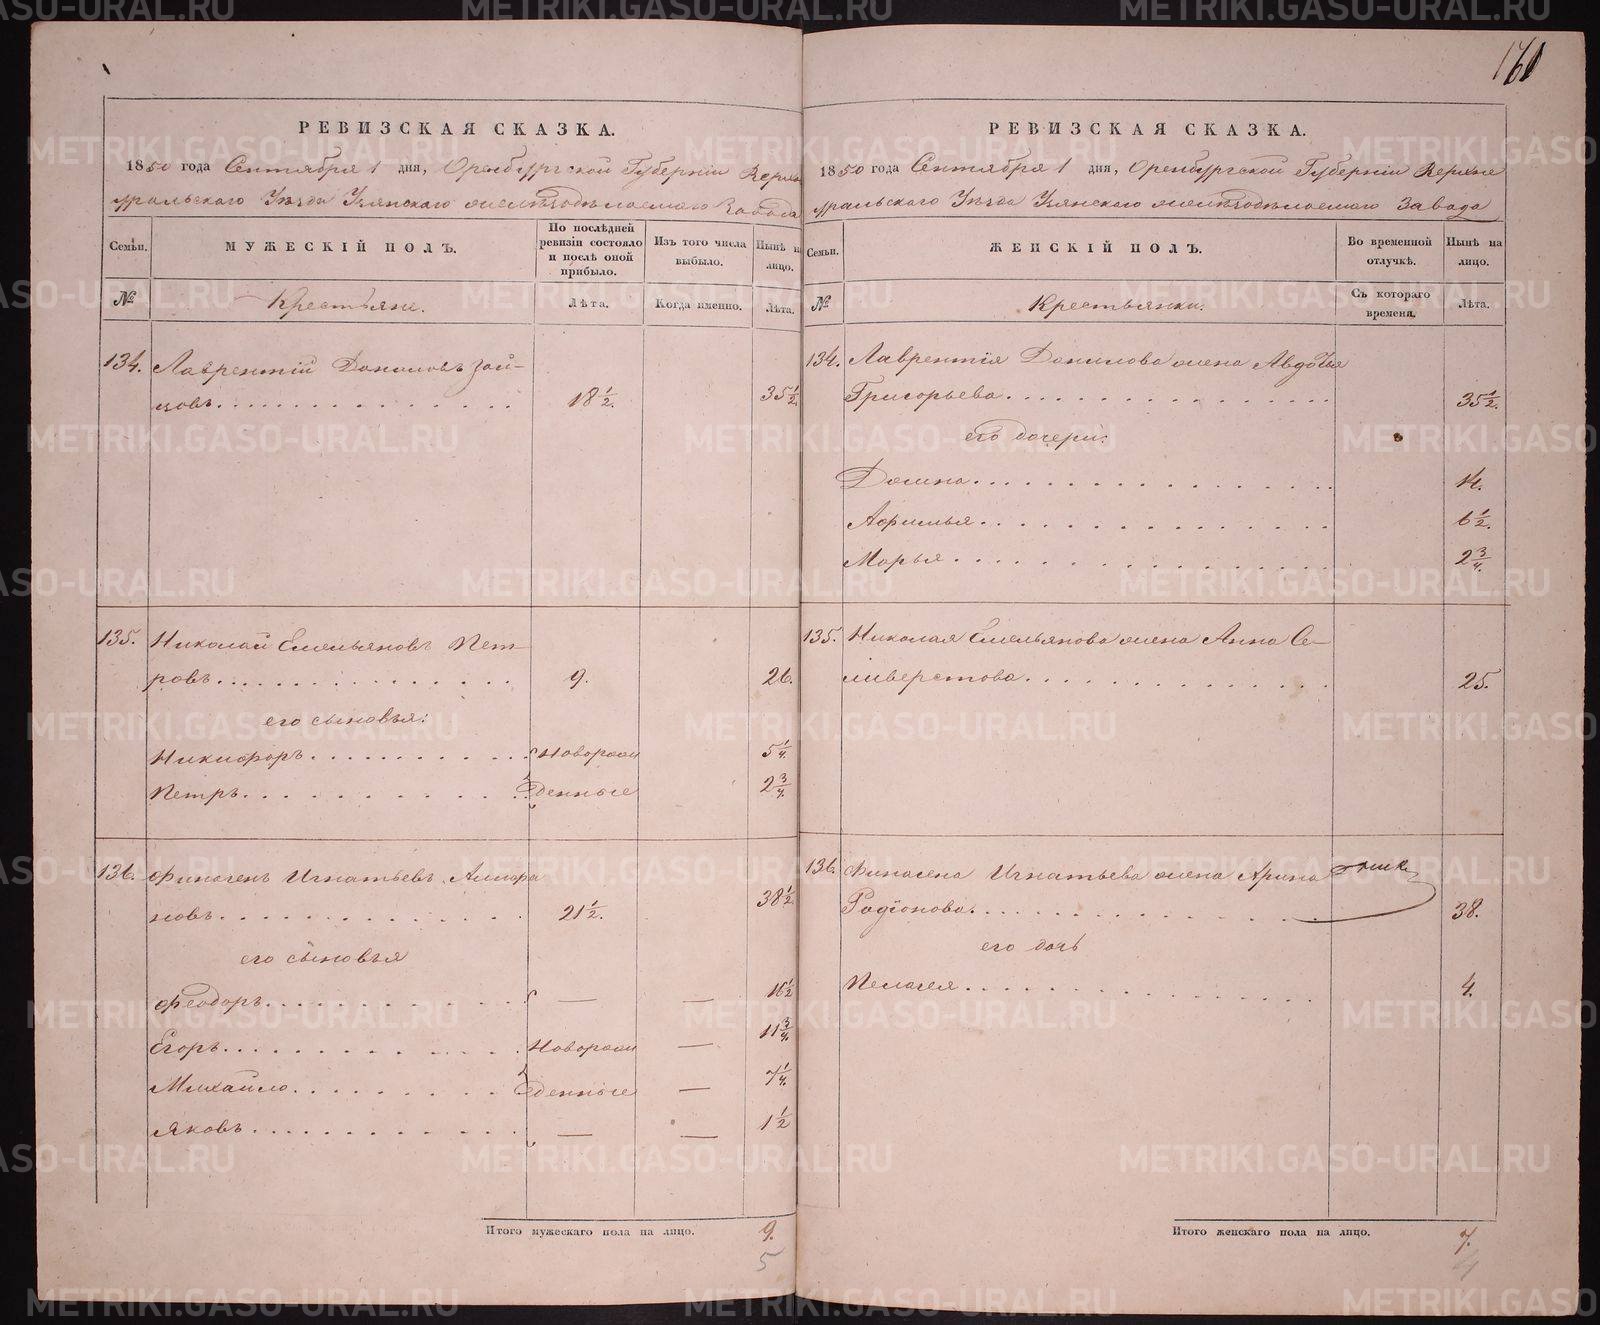 161
РЕВИЗСКАЯ СКАЗКА.
1850 года Сентября 1 дня, Оренбургской Губерніи Верхне
уральскаго Уѣзда Узянскаго желѣзодѣлаемаго Завода
Семьи. МУЖЕСКІЙ ПОЛЪ. По послѣдней ревизіи состояло и послѣ оной прибыло. Изъ того числа выбыло. Нынѣ на лицо.
№ Крестьяне. Лѣта. Когда именно. Лѣта.
134. Лаврентій Даниловъ Зай-
цовъ 18 1/2. 35 1/2.
135. Николай Емельяновъ Пет-
ровъ 9. 26.
его сыновья:
Никифоръ Новорож 5 1/4.
Петръ денные 2 3/4.
136. Финогенъ Игнатьевъ
новъ 21 1/2. 38 1/2
его сыновья
Феодоръ — — 16 1/2
Егоръ Новорож — 11 3/4.
Михайло денные — 7 1/4.
Яковъ — — 1 1/2
Итого мужескаго пола на лицо. 9.
5
РЕВИЗСКАЯ СКАЗКА.
1850 года Сентября 1 дня, Оренбургской Губерніи Верхне
уральскаго Уѣзда Узянскаго желѣзодѣлаемаго Завода
Семьи. ЖЕНСКІЙ ПОЛЪ. Во временной отлучкѣ. Нынѣ на лицо.
№ Крестьянки. Съ котораго времени. Лѣта.
134. Лаврентія Данилова жена Авдотья
Григорьева 35 1/2.
его дочери:
Домна 14.
Афимья 6 1/2.
Марья 2 3/4.
135. Николая Емельянова жена Анна Се-
ливерстова 25.
136. Финогена Игнатьева жена Арина
Родіонова 38.
его дочь
Пелагея 4.
Итого женскаго пола на лицо. 7.
4
METRIKI.GASO-URAL.RU